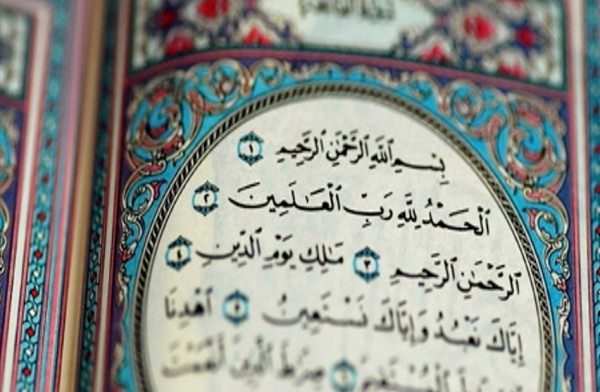 بِسْمِ ٱللَّهِ ٱلرَّحْمَٰنِ ٱلرَّحِيمِ ١
ٱلْحَمْدُ لِلَّهِ رَبِّ ٱلْعَٰلَمِينَ ٢
ٱلرَّحْمَٰنِ ٱلرَّحِيمِ ٣ مَٰلِكِ يَوْمِ ٱلدِّينِ ٤
إِيَّاكَ نَعْبُدُ وَإِيَّاكَ نَسْتَعِينُ ٥ ٱهْدِنَا
ٱلْمُسْتَقِيمَ ٦ صِرَٰطَ ٱلَّذِينَ أَنْعَمْتَ